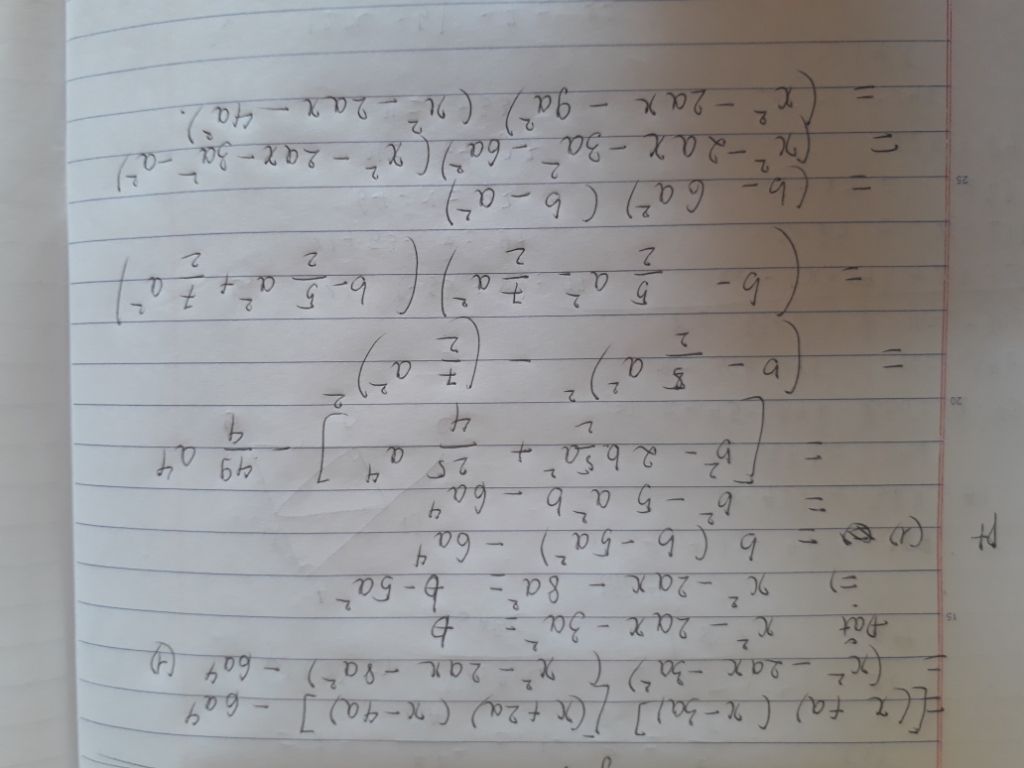 =[(x +a) (x-3a)] [(x+2a) (x-4a)] - 6a⁴
= (x² - 2ax - 3a²) (x² - 2ax - 8a²) - 6a⁴ (1)
Đặt x² - 2ax - 3a² = b
=) x² - 2ax - 8a² = b - 5a²
pt (1) = b (b - 5a²) - 6a⁴
= b² - 5a²b - 6a⁴
= [b² - 2b 5/2 a² + 25/4 a⁴] - 49/4 a⁴
= (b - 5/2 a²)² - (7/2 a²)²
= (b - 5/2 a² - 7/2 a²) (b - 5/2 a² + 7/2 a²)
= (b - 6a²) (b - a²)
= (x² - 2ax - 3a² - 6a²) (x² - 2ax - 3a² - a²)
= (x² - 2ax - 9a²) (x² - 2ax - 4a²).
15
20
25